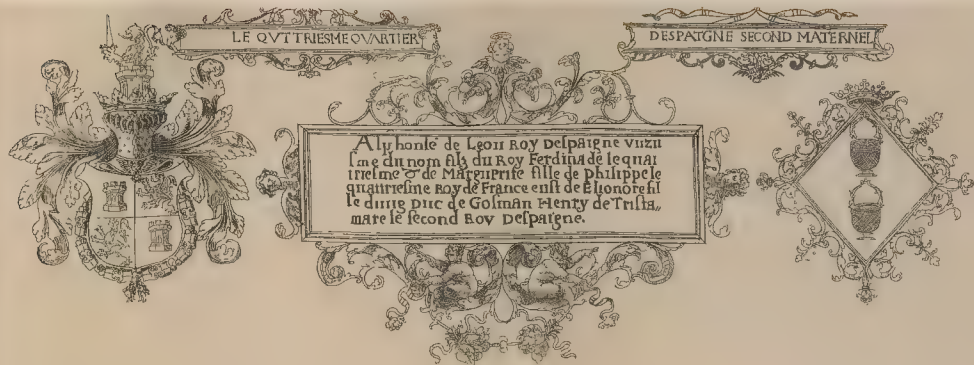 LE QVTTRIESME QVARTIER
DESPAIGNE SECOND MATERNEL
Alphonse de Leon Roy Despaigne vnzii
sme du nom fils du Roy Ferdinãde le quat
triesme & de Marguerite fille de Philippe le
quattriesme Roy de France eust de Elionore fil
le dung Duc de Gosman Henry de Trista„
mare le second Roy Despaigne.